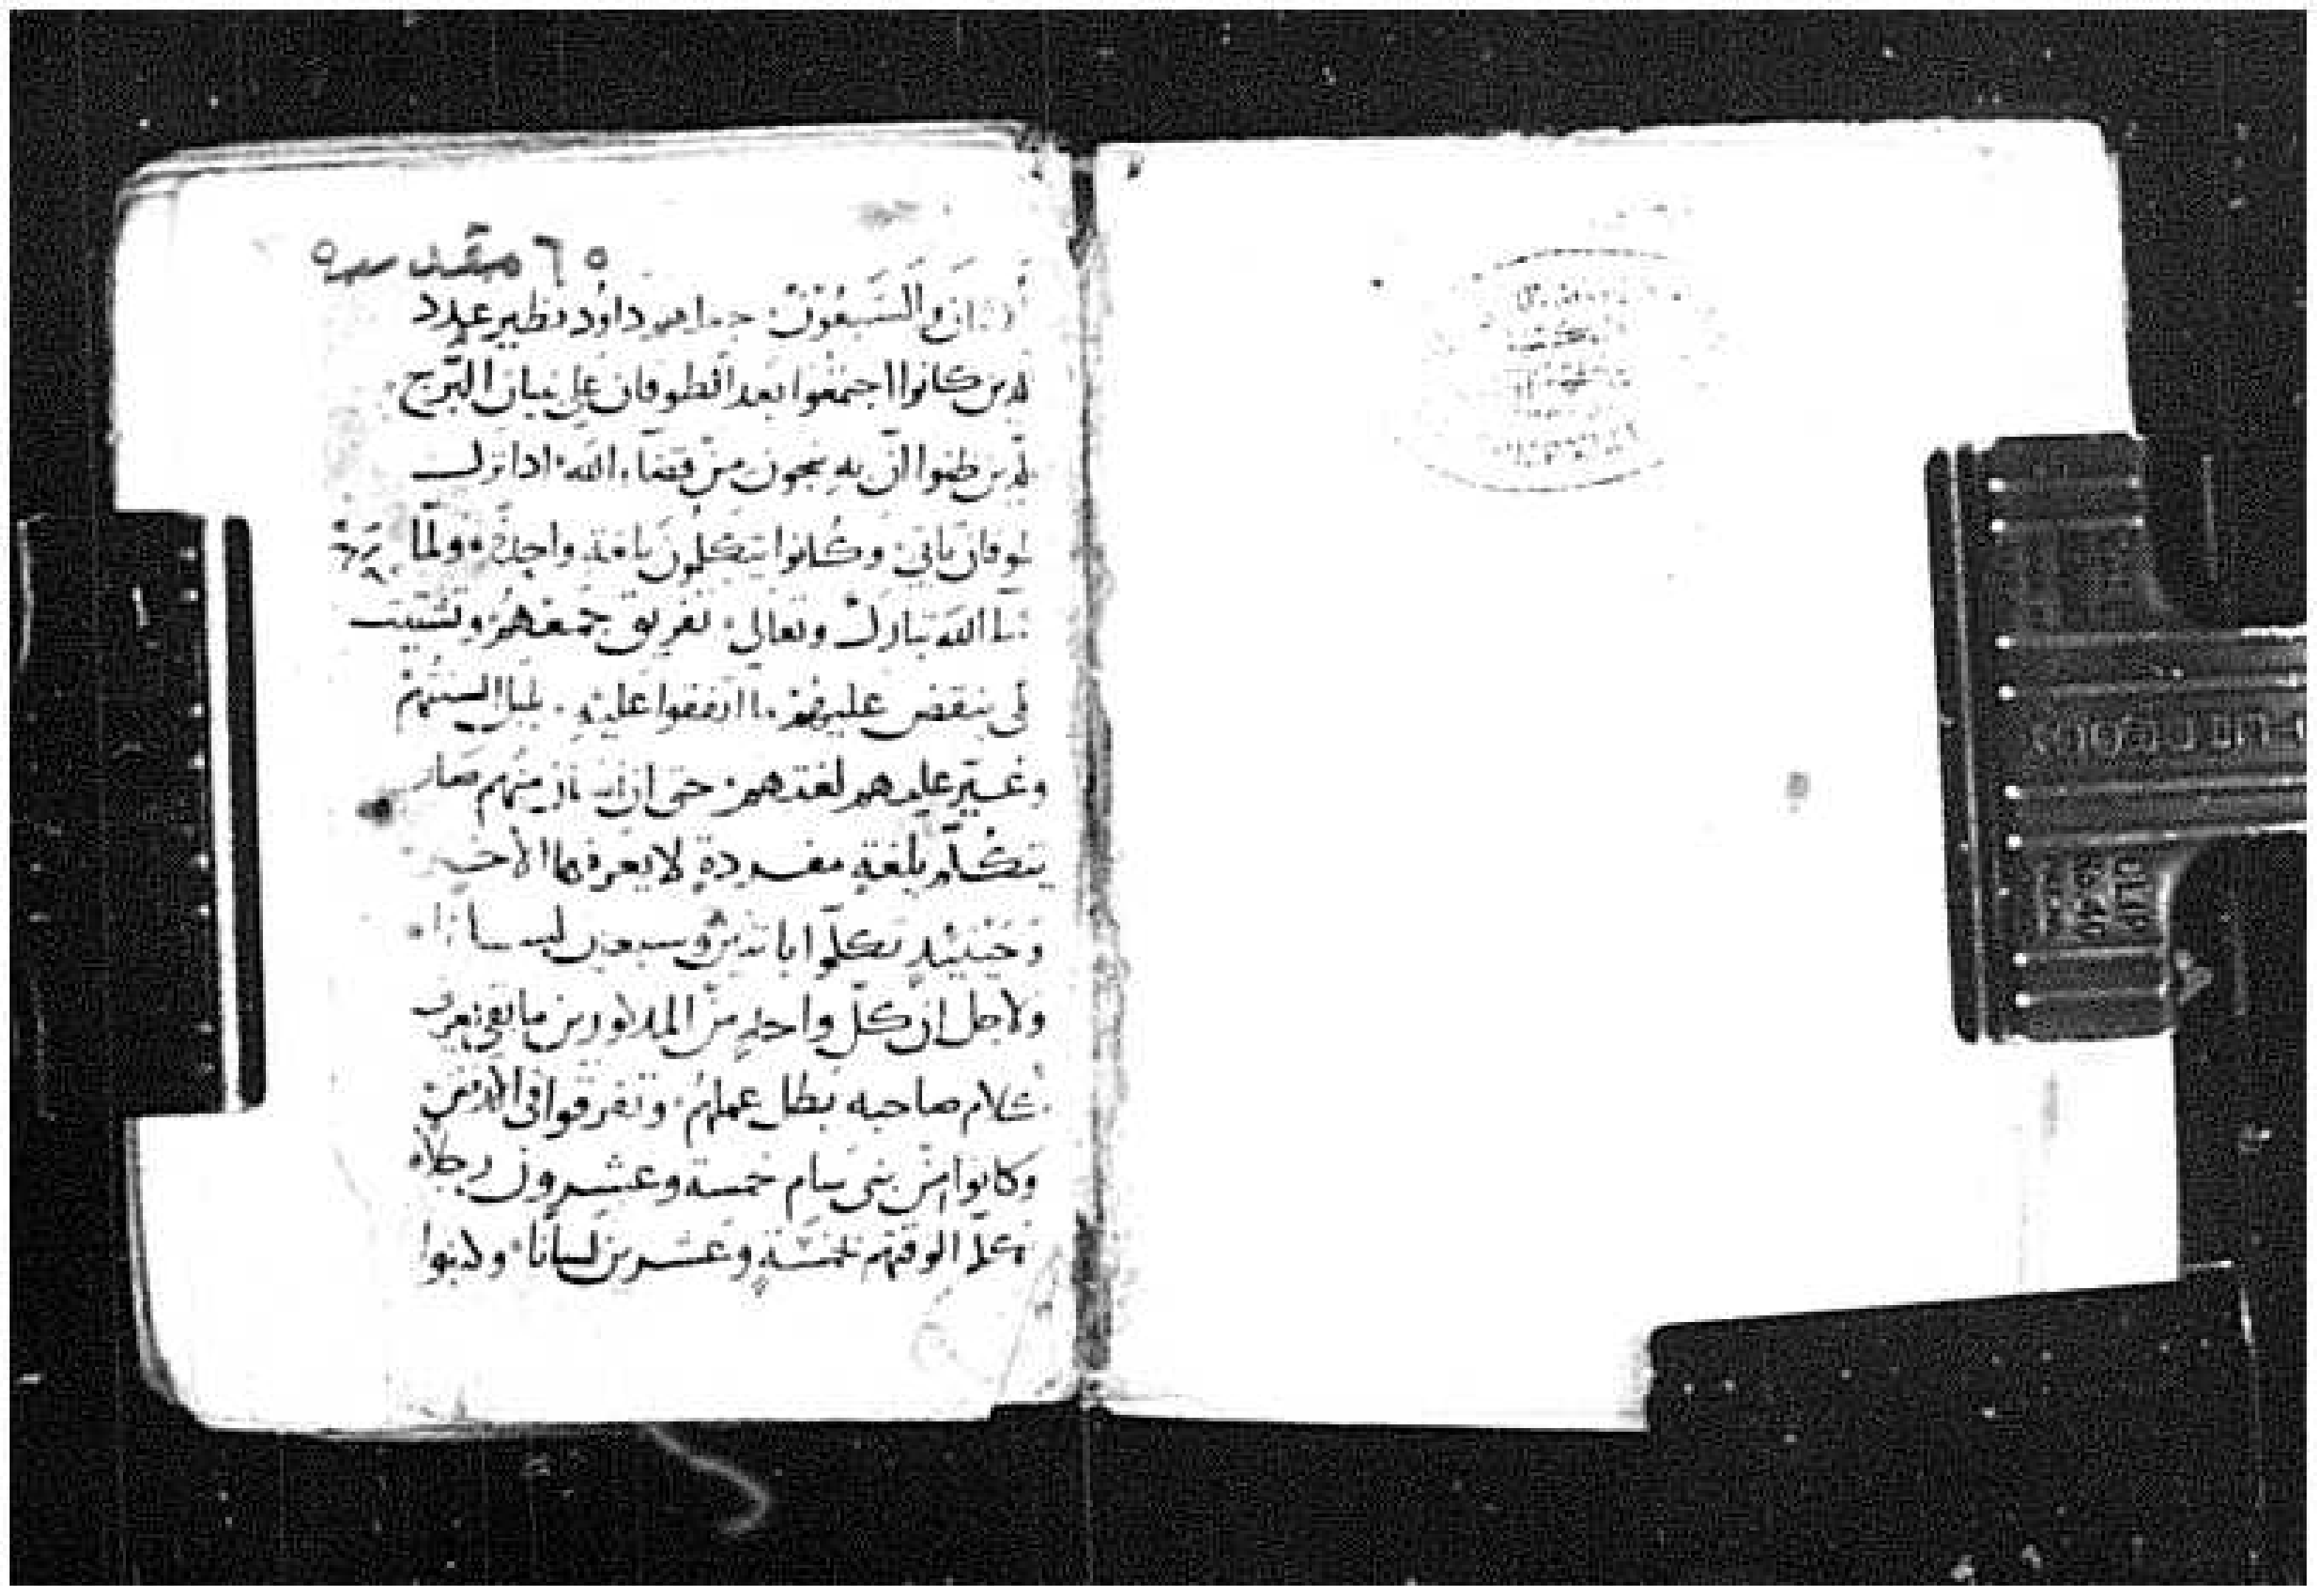 ٦٥ مقدسه
والسبعون جعلهم داود نظير عدد
كانوا اجتمعوا بعد الطوفان على بنيان البرج
ظنوا ان به ينجون من قضاء الله اذا نزل
وكانوا يتكلمون بلغة واحدة ولما
الله تبارك وتعالى تفريق جمعهم وتشتيت
ينقض عليهم ما اتفقوا عليه بلبل السنتهم
وغير عليهم لغتهم حتى ان منهم صار
يتكلم بلغة مفردة لا يعرفها الاخر
وحينيذ تكلموا باثنين وسبعين لسانا
ولاجل ان كل واحد من المذكورين ما بقي يعرف
كلام صاحبه بطل عملهم وتفرقوا في
وكانوا من بني سام خمسة وعشرون رجلا
لوقتهم بخمسة وعشرين لسانا وكانوا